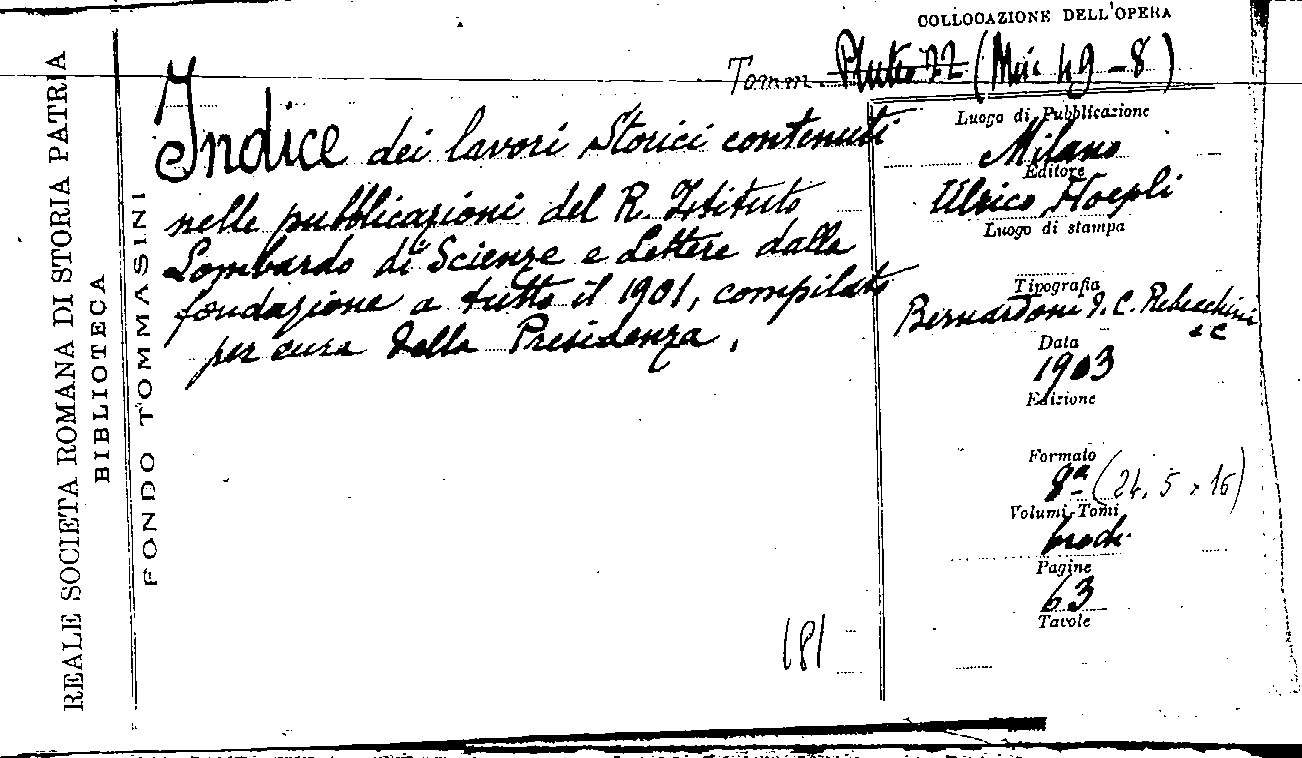 COLLOCAZIONE DELL'OPERA
Tomm. Pluteo 22 (Misc 49-8)
REALE SOCIETA ROMANA DI STORIA PATRIA
BIBLIOTECA
FONDO TOMMASINI
Indice dei lavori Storici contenuti
nelle pubblicazioni del R. Istituto
Lombardo di Scienze e Lettere dalla
fondazione a tutto il 1901, compilato
per cura della Presidenza.
181
Luogo di Pubblicazione
Milano
Editore
Ulrico Hoepli
Luogo di stampa
Tipografia
Bernardoni d. C. Rebeschini
e C
Data
1903
Edizione
Formato
8ª (24,5 × 16)
Volumi-Tomi
broch.
Pagine
63
Tavole